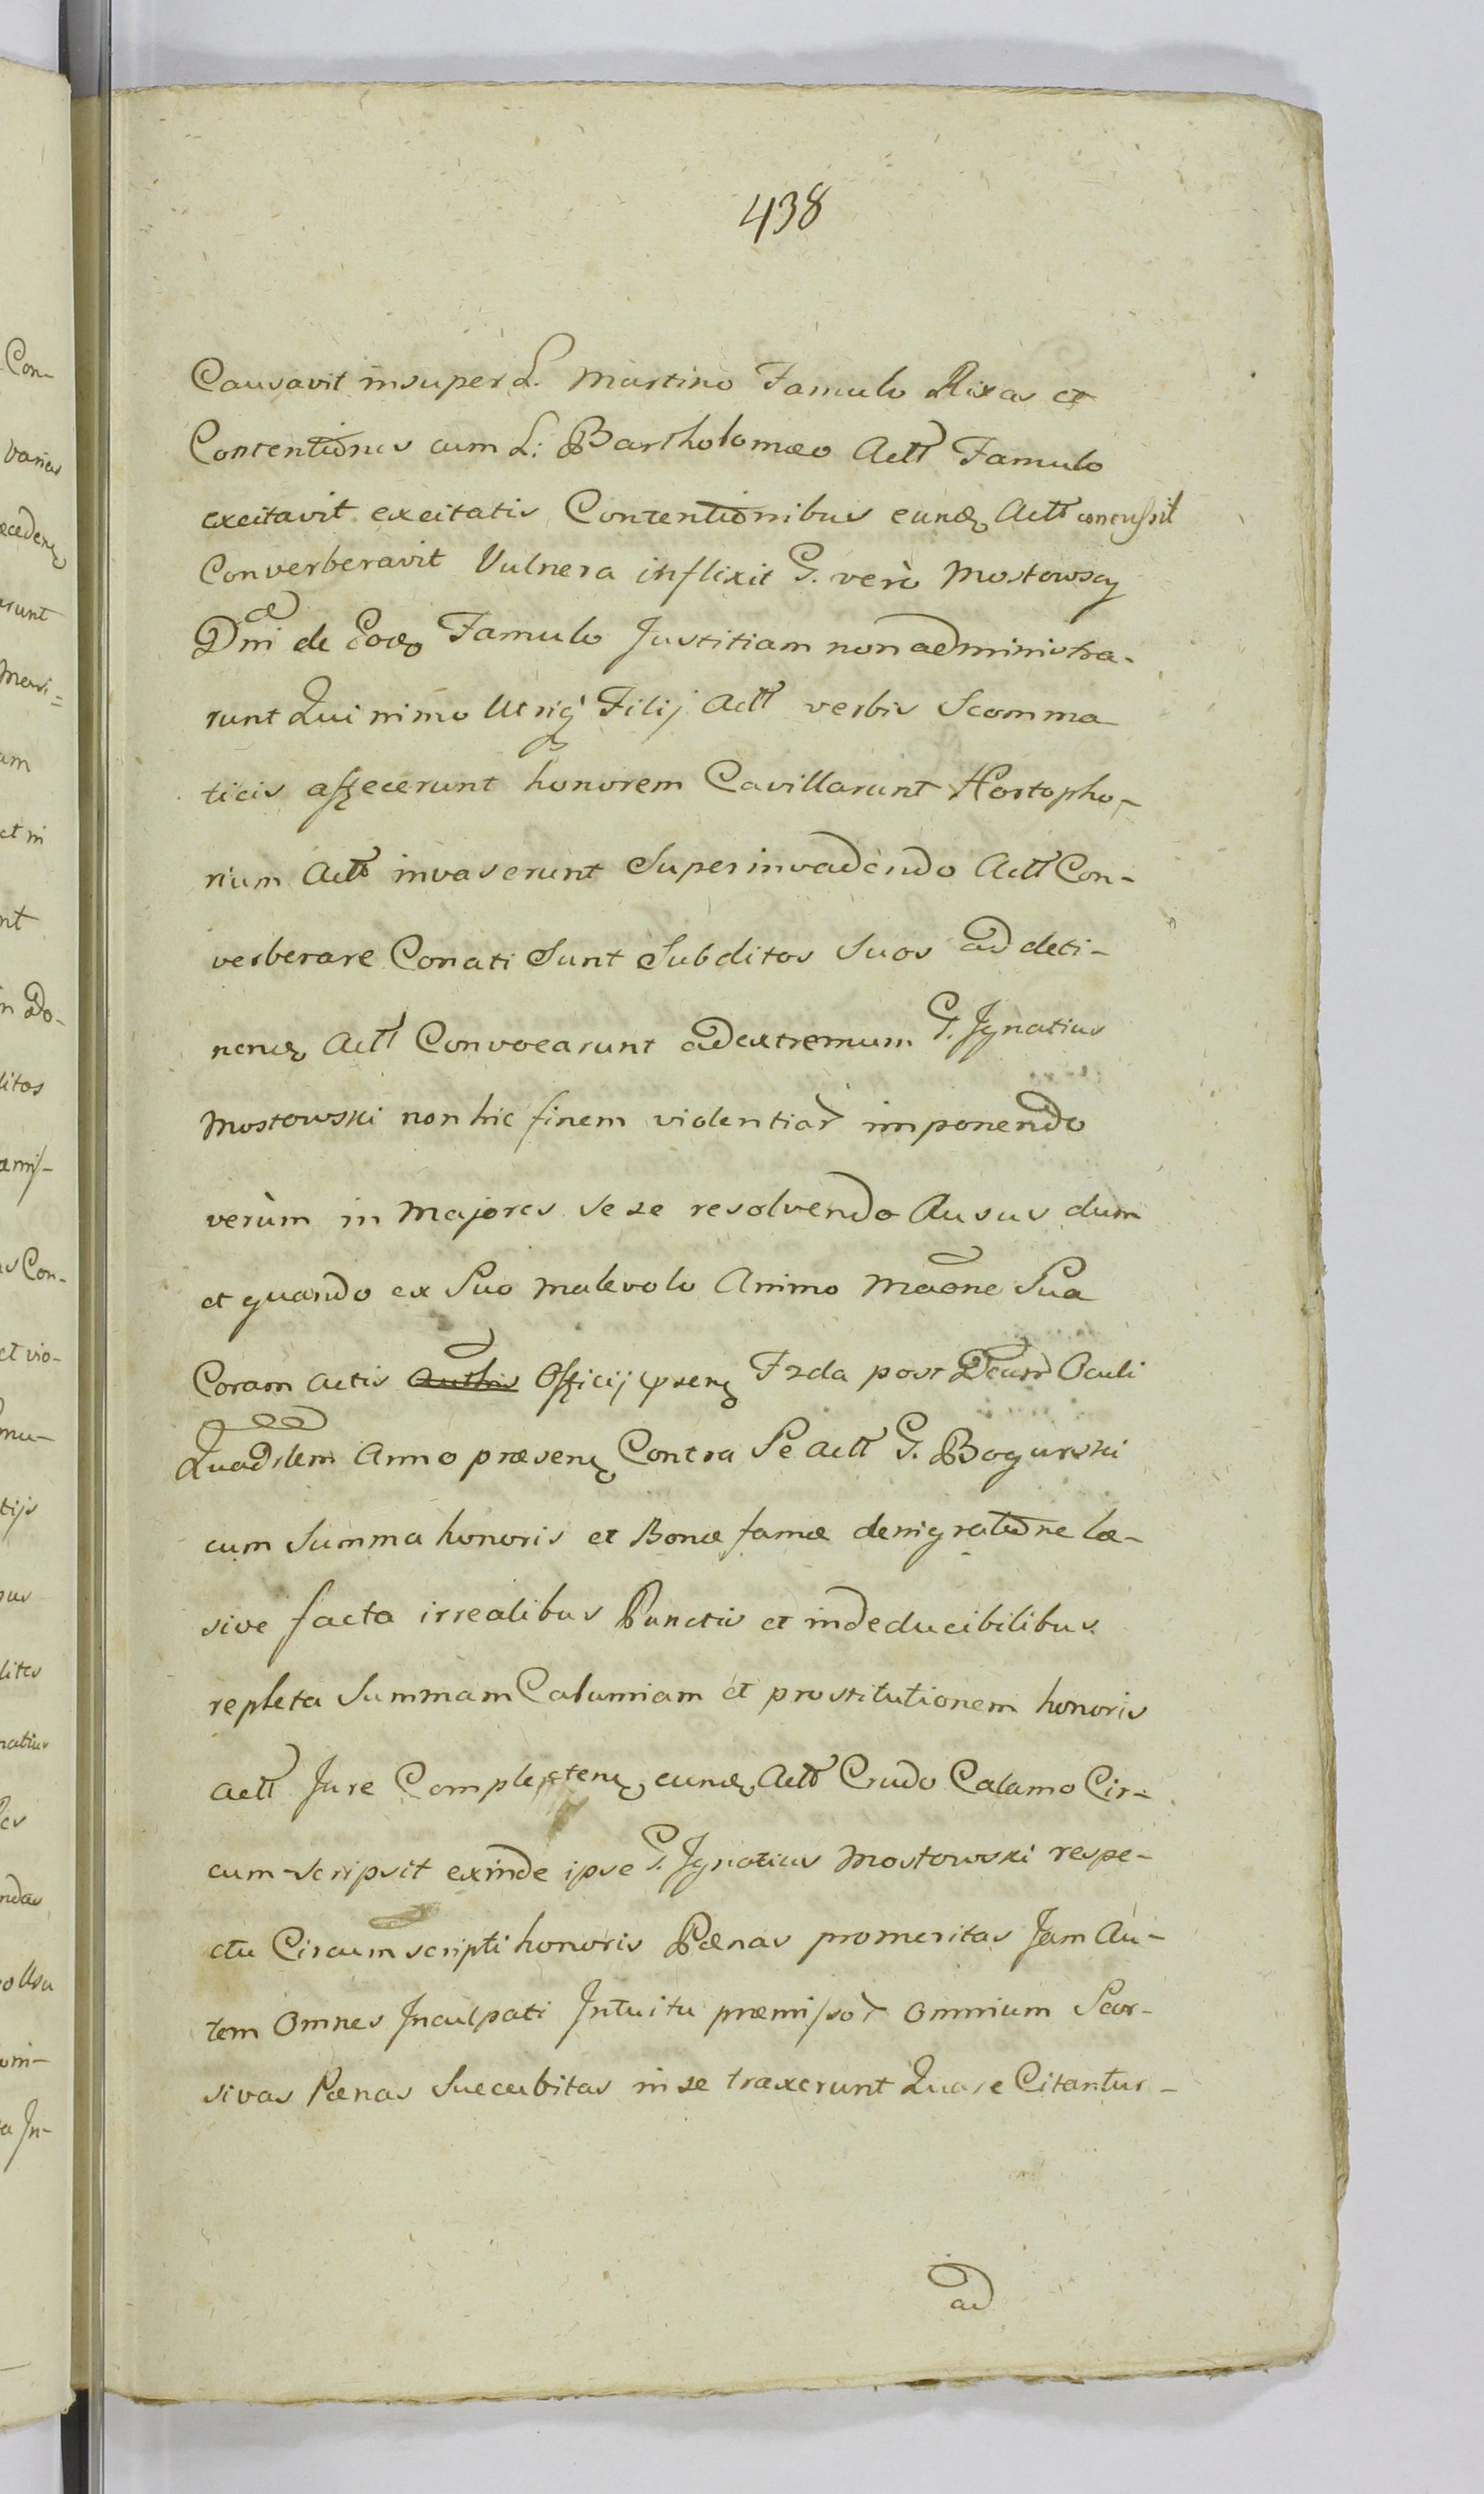 438
Causavit insuper L. Martino Famulo Rixas et
Contentiones cum L: Bartholomæo Actt Famulo
excitavit excitatis Contentionibus eund. Actt concussit
Converberavit Vulnera inflixit G. verò Mostowscy
Dni de Eod. Famulo Justitiam non administra-
runt Qui nimo Utriq Filij Actt verbis Scomma
ticis affecerunt honorem Cavillarunt Hostopho-
rium Actt invaserunt Superinvadendo Actt Con-
verberare Conati Sunt Subditos Suos ad deti-
nend. Actt Convocarunt ad extremum G. Jgnatius
Mostowski non hic finem violentiar imponendo
verùm in Majores sese resolvendo Ausus dum
et quando ex Suo malevolo Animo Maone Sua
Coram Actis Officij præsen. Fzda post Dcam Oculi
Quadslem Anno præsen. Contra Se Actt G. Bogurski
cum Summa honoris et Bonæ famæ denigratione læ-
sive facta irrealibus Punctis et indeducibilibus
repleta Summam Calumiam et prostitutionem honoris
Actt Jure Complecten. eund. Actt Crudo Calamo Cir-
cum-scripsit exinde ipse G. Jgnatius Mostowski respe-
ctu Circumscripti honoris Pænas promeritas Jam Au-
tem Omnes Jnculpati Jntuitu præmissor omnium Seor-
sivas Pænas Succubitas in se traxerunt Quare Citantur-
ad